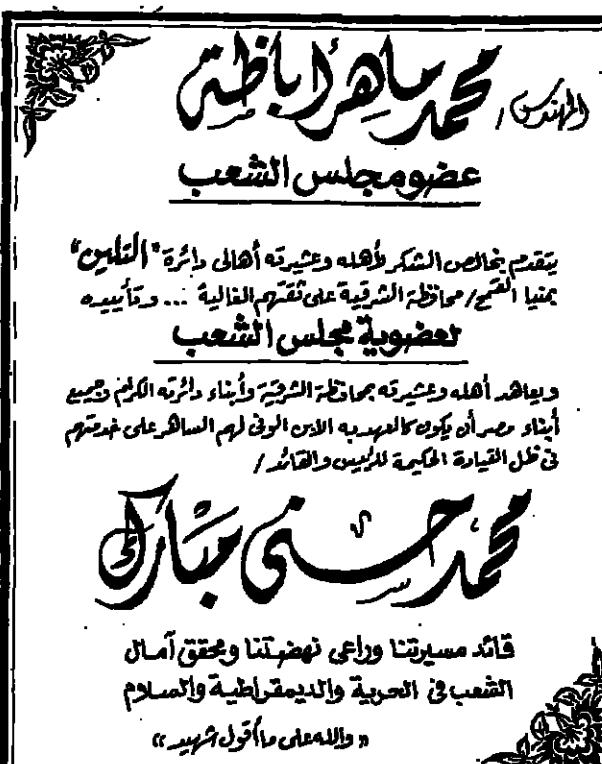 المهندس /
محمد ماهر أباظة
عضو مجلس الشعب
يتقدم بخالص الشكر لأهله وعشيرته أهالى دائرة "التلين"
بمنيا القمح / محافظة الشرقية على ثقتهم الغالية ... وتأييده
لعضوية مجلس الشعب
ويعاهد أهله وعشيرته بمحافظة الشرقية وأبناء دائرته الكرام وجميع
أبناء مصر أن يكون كالعهد به الابن الوفى لهم الساهر على خدمتهم
فى ظل القيادة الحكيمة للرئيس والقائد /
محمد حسنى مبارك
قائد مسيرتنا وراعى نهضتنا ومحقق آمال
الشعب فى الحرية والديمقراطية والسلام
« والله على ما أقول شهيد »